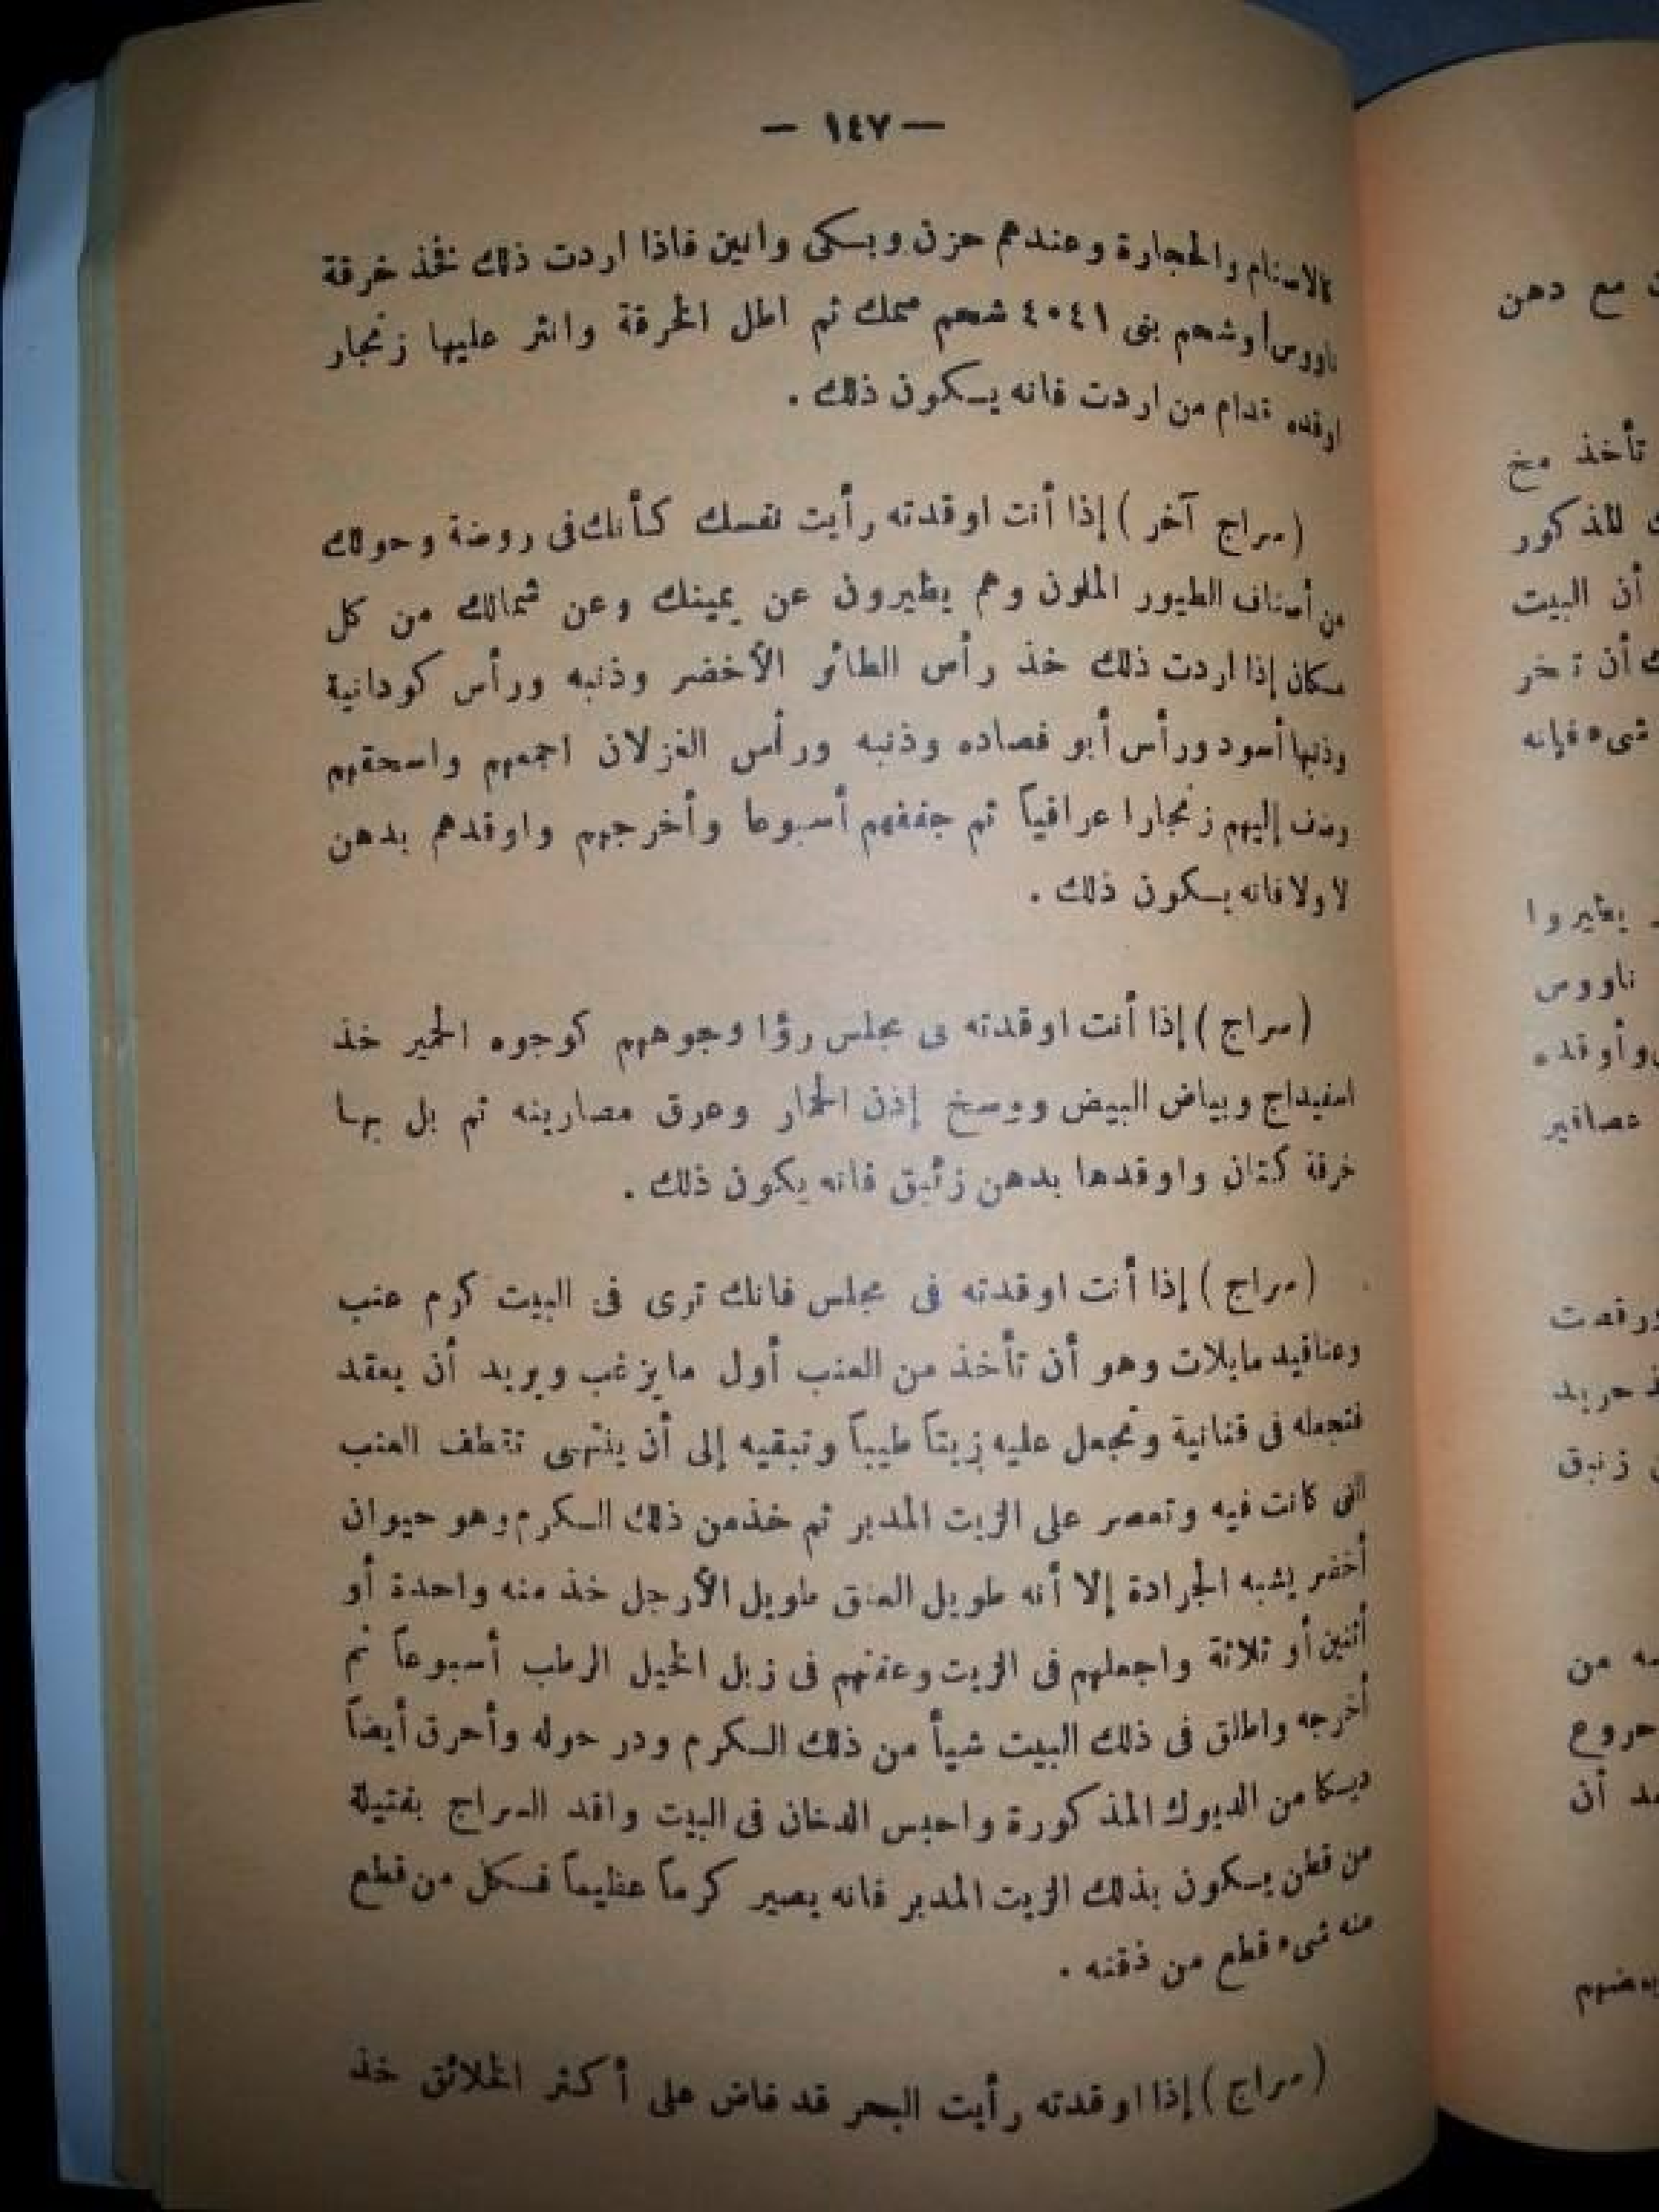 — ١٤٧ —
كالاصنام والحجارة وعندهم حزن وبكى وانين فاذا اردت ذلك نخذ خرقة
ناووس أو شحم بنى ٤٠٤١ شحم سمك ثم اطل الخرقة وانثر عليها زنجار
اوقده قدام من اردت فانه يكون ذلك .
( سراج آخر ) إذا أنت اوقدته رأيت نفسك كأنك فى روضة وحولك
من أصناف الطيور الملون وهم يطيرون عن يمينك وعن شمالك من كل
مكان إذا اردت ذلك خذ رأس الطائر الأخضر وذنبه ورأس كودانية
وذنبها أسود ورأس أبو فصاده وذنبه ورأس الغزلان اجمعهم واسحقهم
وضف إليهم زنجارا عراقياً ثم جففهم أسبوعا وأخرجهم واوقدهم بدهن
لاولا فانه يكون ذلك .
( سراج ) إذا أنت اوقدته فى مجلس رؤا وجوههم كوجوه الحمير خذ
اسفيداج وبياض البيض ووسخ إذن الحمار وعرق مصارينه ثم بل بها
خرقة كتان واوقدها بدهن زئبق فانه يكون ذلك .
( سراج ) إذا أنت اوقدته فى مجلس فانك ترى فى البيت كرم عنب
وعناقيد مايلات وهو أن تأخذ من العنب أول مايزغب ويريد أن يعقد
فتجعله فى قنانية وتجعل عليه زيتاً طيباً وتبقيه إلى أن ينتهى تقطف العنب
التى كانت فيه وتعصر على الزيت المدبر ثم خذمن ذلك الكرم وهو حيوان
أخضر يشبه الجرادة إلا أنه طويل العنق طويل الأرجل خذ منه واحدة أو
أثنين أو ثلاثة واجعلهم فى الزيت وعفنهم فى زبل الخيل الرطب أسبوعاً ثم
أخرجه واطلق فى ذلك البيت شيأ من ذلك الكرم ودر حوله وأحرق أيضاً
ديكا من الديوك المذكورة واحبس الدخان فى البيت واقد السراج بفتيلة
من قطن يكون بذلك الزيت المدبر فانه يصير كرماً عظيماً فكل من قطع
منه شىء قطع من ذقنه .
( سراج ) إذا اوقدته رأيت البحر قد فاض على أكثر الخلائق خذ
مع دهن
تأخذ مخ
المذكور
أن البيت
أن تخر
شىء فإنه
يطيروا
ناووس
وأوقده
عصافير
ورقصت
زئبق
من
أن